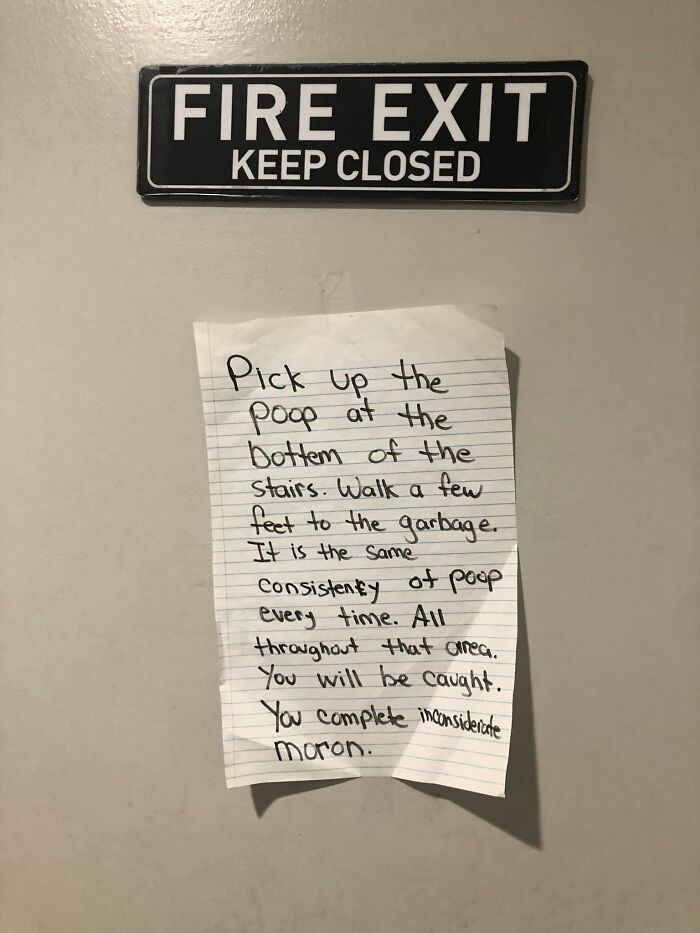 FIRE EXIT
KEEP CLOSED
Pick up the
poop at the
bottem of the
stairs. Walk a few
feet to the garbage.
It is the same
consistency of poop
every time. All
throughout that area.
You will be caught.
You complete inconsiderate
moron.